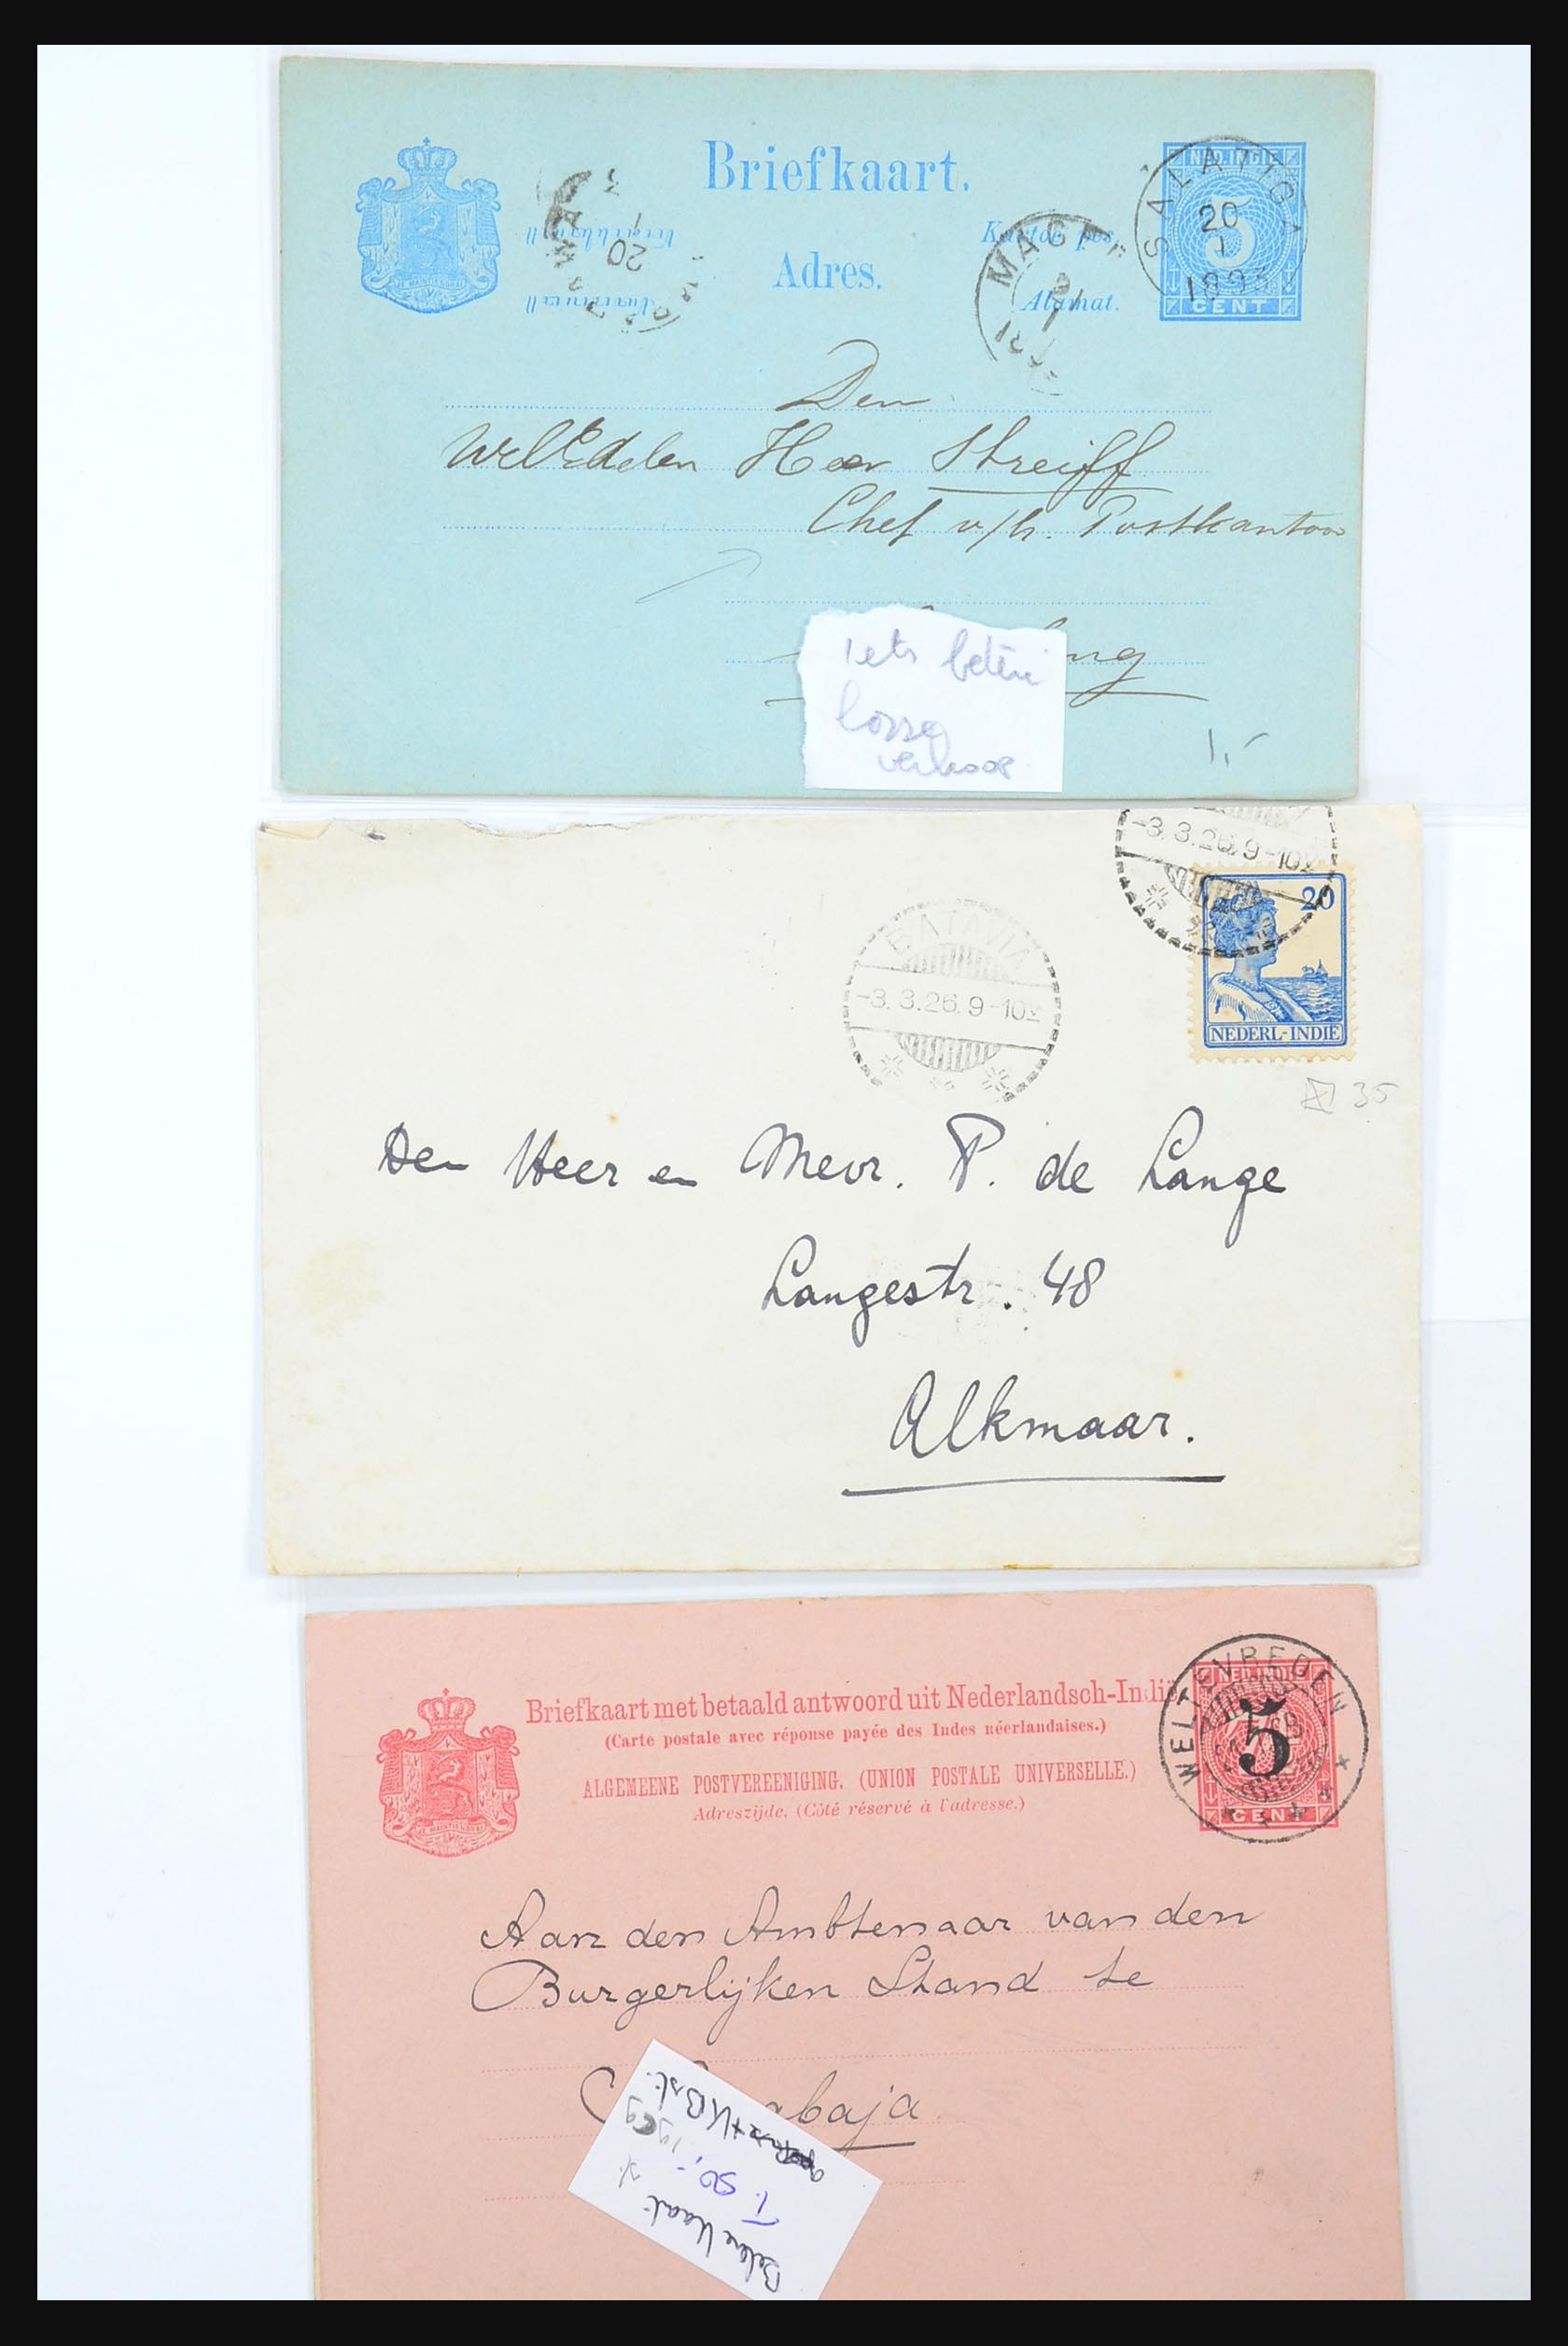 Briefkaart.
Kartoe pos.
Adres.
Alamat.
NED. INDIE
5
CENT
SALATIGA
20
1
1893
MAGE
20
1
Den
WelEdelen Heer Streiff
Chef v/h. Postkantoor
ng
Iets beter
losse
verkoop
1,-
-3.3.26.9-10V
20
NEDERL-INDIË
BATAVIA
-3.3.26.9-10V
35
Den Heer en Mevr. P. de Lange
Langestr. 48
Alkmaar.
Briefkaart met betaald antwoord uit Nederlandsch-Indië
(Carte postale avec réponse payée des Indes néerlandaises.)
ALGEMEENE POSTVEREENIGING. (UNION POSTALE UNIVERSELLE.)
Adreszijde. (Côté réservé à l'adresse.)
JE MAINTIENDRAI
NED. INDIE
5
CENT
WELTEVREDEN
Aan den Ambtenaar van den
Burgerlijken Stand te
abaja
Betere Kaart
T. 50,-